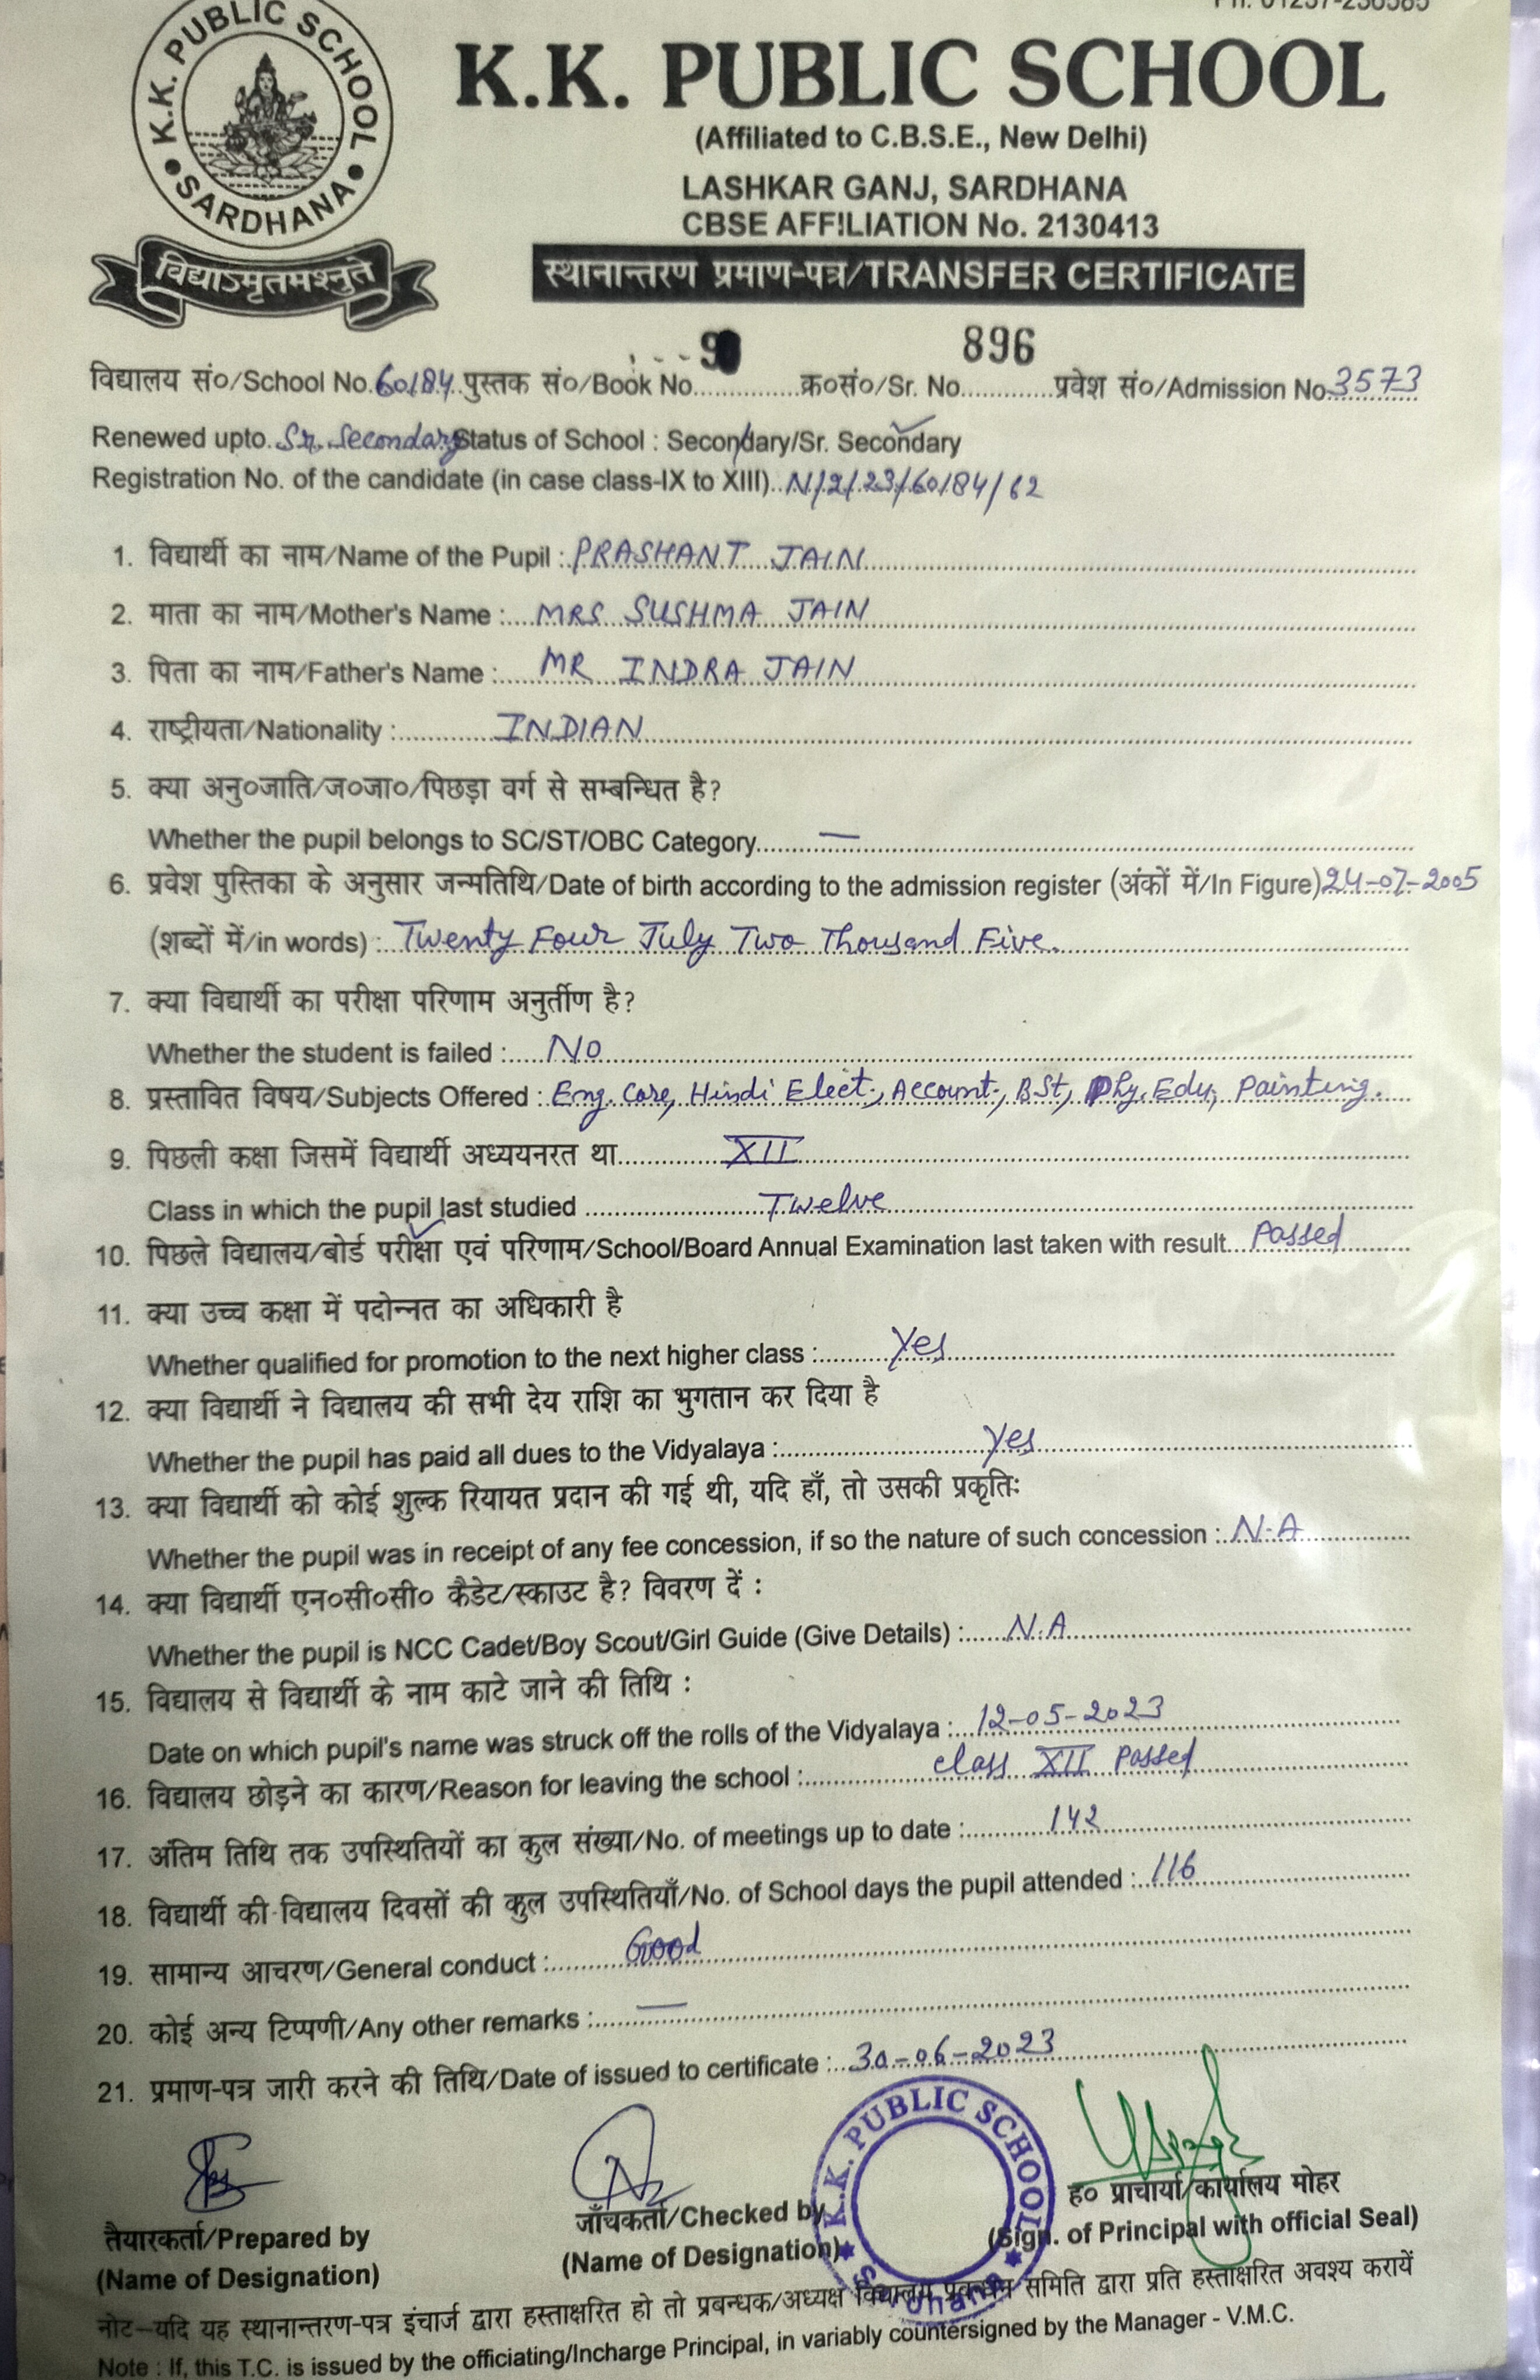 Ph. 01237-236585
K.K. PUBLIC SCHOOL
SARDHANA
विद्याऽमृतमश्नुते
K.K. PUBLIC SCHOOL
(Affiliated to C.B.S.E., New Delhi)
LASHKAR GANJ, SARDHANA
CBSE AFFILIATION No. 2130413
स्थानान्तरण प्रमाण-पत्र/TRANSFER CERTIFICATE
896
विद्यालय सं०/School No. 60184 पुस्तक सं०/Book No. 9 क्र०सं०/Sr. No. प्रवेश सं०/Admission No. 3573
Renewed upto. Sr. Secondary Status of School : Secondary/Sr. Secondary
Registration No. of the candidate (in case class-IX to XIII).. N/2/23/60184/62
1. विद्यार्थी का नाम/Name of the Pupil : PRASHANT JAIN
2. माता का नाम/Mother's Name : MRS SUSHMA JAIN
3. पिता का नाम/Father's Name : MR INDRA JAIN
4. राष्ट्रीयता/Nationality : INDIAN
5. क्या अनु०जाति/ज०जा०/पिछड़ा वर्ग से सम्बन्धित है?
Whether the pupil belongs to SC/ST/OBC Category —
6. प्रवेश पुस्तिका के अनुसार जन्मतिथि/Date of birth according to the admission register (अंकों में/In Figure) 24-07-2005
(शब्दों में/in words) : Twenty Four July Two Thousand Five.
7. क्या विद्यार्थी का परीक्षा परिणाम अनुर्तीण है?
Whether the student is failed : No
8. प्रस्तावित विषय/Subjects Offered : Eng. Core, Hindi Elect., Account., B.St, Phy. Edu, Painting.
9. पिछली कक्षा जिसमें विद्यार्थी अध्ययनरत था XII
Class in which the pupil last studied Twelve
10. पिछले विद्यालय/बोर्ड परीक्षा एवं परिणाम/School/Board Annual Examination last taken with result Passed
11. क्या उच्च कक्षा में पदोन्नत का अधिकारी है
Whether qualified for promotion to the next higher class : Yes
12. क्या विद्यार्थी ने विद्यालय की सभी देय राशि का भुगतान कर दिया है
Whether the pupil has paid all dues to the Vidyalaya : Yes
13. क्या विद्यार्थी को कोई शुल्क रियायत प्रदान की गई थी, यदि हाँ, तो उसकी प्रकृतिः
Whether the pupil was in receipt of any fee concession, if so the nature of such concession : N.A
14. क्या विद्यार्थी एन०सी०सी० कैडेट/स्काउट है? विवरण दें :
Whether the pupil is NCC Cadet/Boy Scout/Girl Guide (Give Details) : N.A
15. विद्यालय से विद्यार्थी के नाम काटे जाने की तिथि :
Date on which pupil's name was struck off the rolls of the Vidyalaya : 12-05-2023
16. विद्यालय छोड़ने का कारण/Reason for leaving the school : class XII Passed
17. अंतिम तिथि तक उपस्थितियों का कुल संख्या/No. of meetings up to date : 142
18. विद्यार्थी की विद्यालय दिवसों की कुल उपस्थितियाँ/No. of School days the pupil attended : 116
19. सामान्य आचरण/General conduct : Good
20. कोई अन्य टिप्पणी/Any other remarks : —
21. प्रमाण-पत्र जारी करने की तिथि/Date of issued to certificate : 30-06-2023
K.K. PUBLIC SCHOOL
Sardhana
तैयारकर्ता/Prepared by
(Name of Designation)
जाँचकर्ता/Checked by
(Name of Designation)
ह० प्राचार्या/कार्यालय मोहर
(Sign. of Principal with official Seal)
नोट—यदि यह स्थानान्तरण-पत्र इंचार्ज द्वारा हस्ताक्षरित हो तो प्रबन्धक/अध्यक्ष विद्यालय प्रबन्धन समिति द्वारा प्रति हस्ताक्षरित अवश्य करायें
Note : If, this T.C. is issued by the officiating/Incharge Principal, in variably countersigned by the Manager - V.M.C.